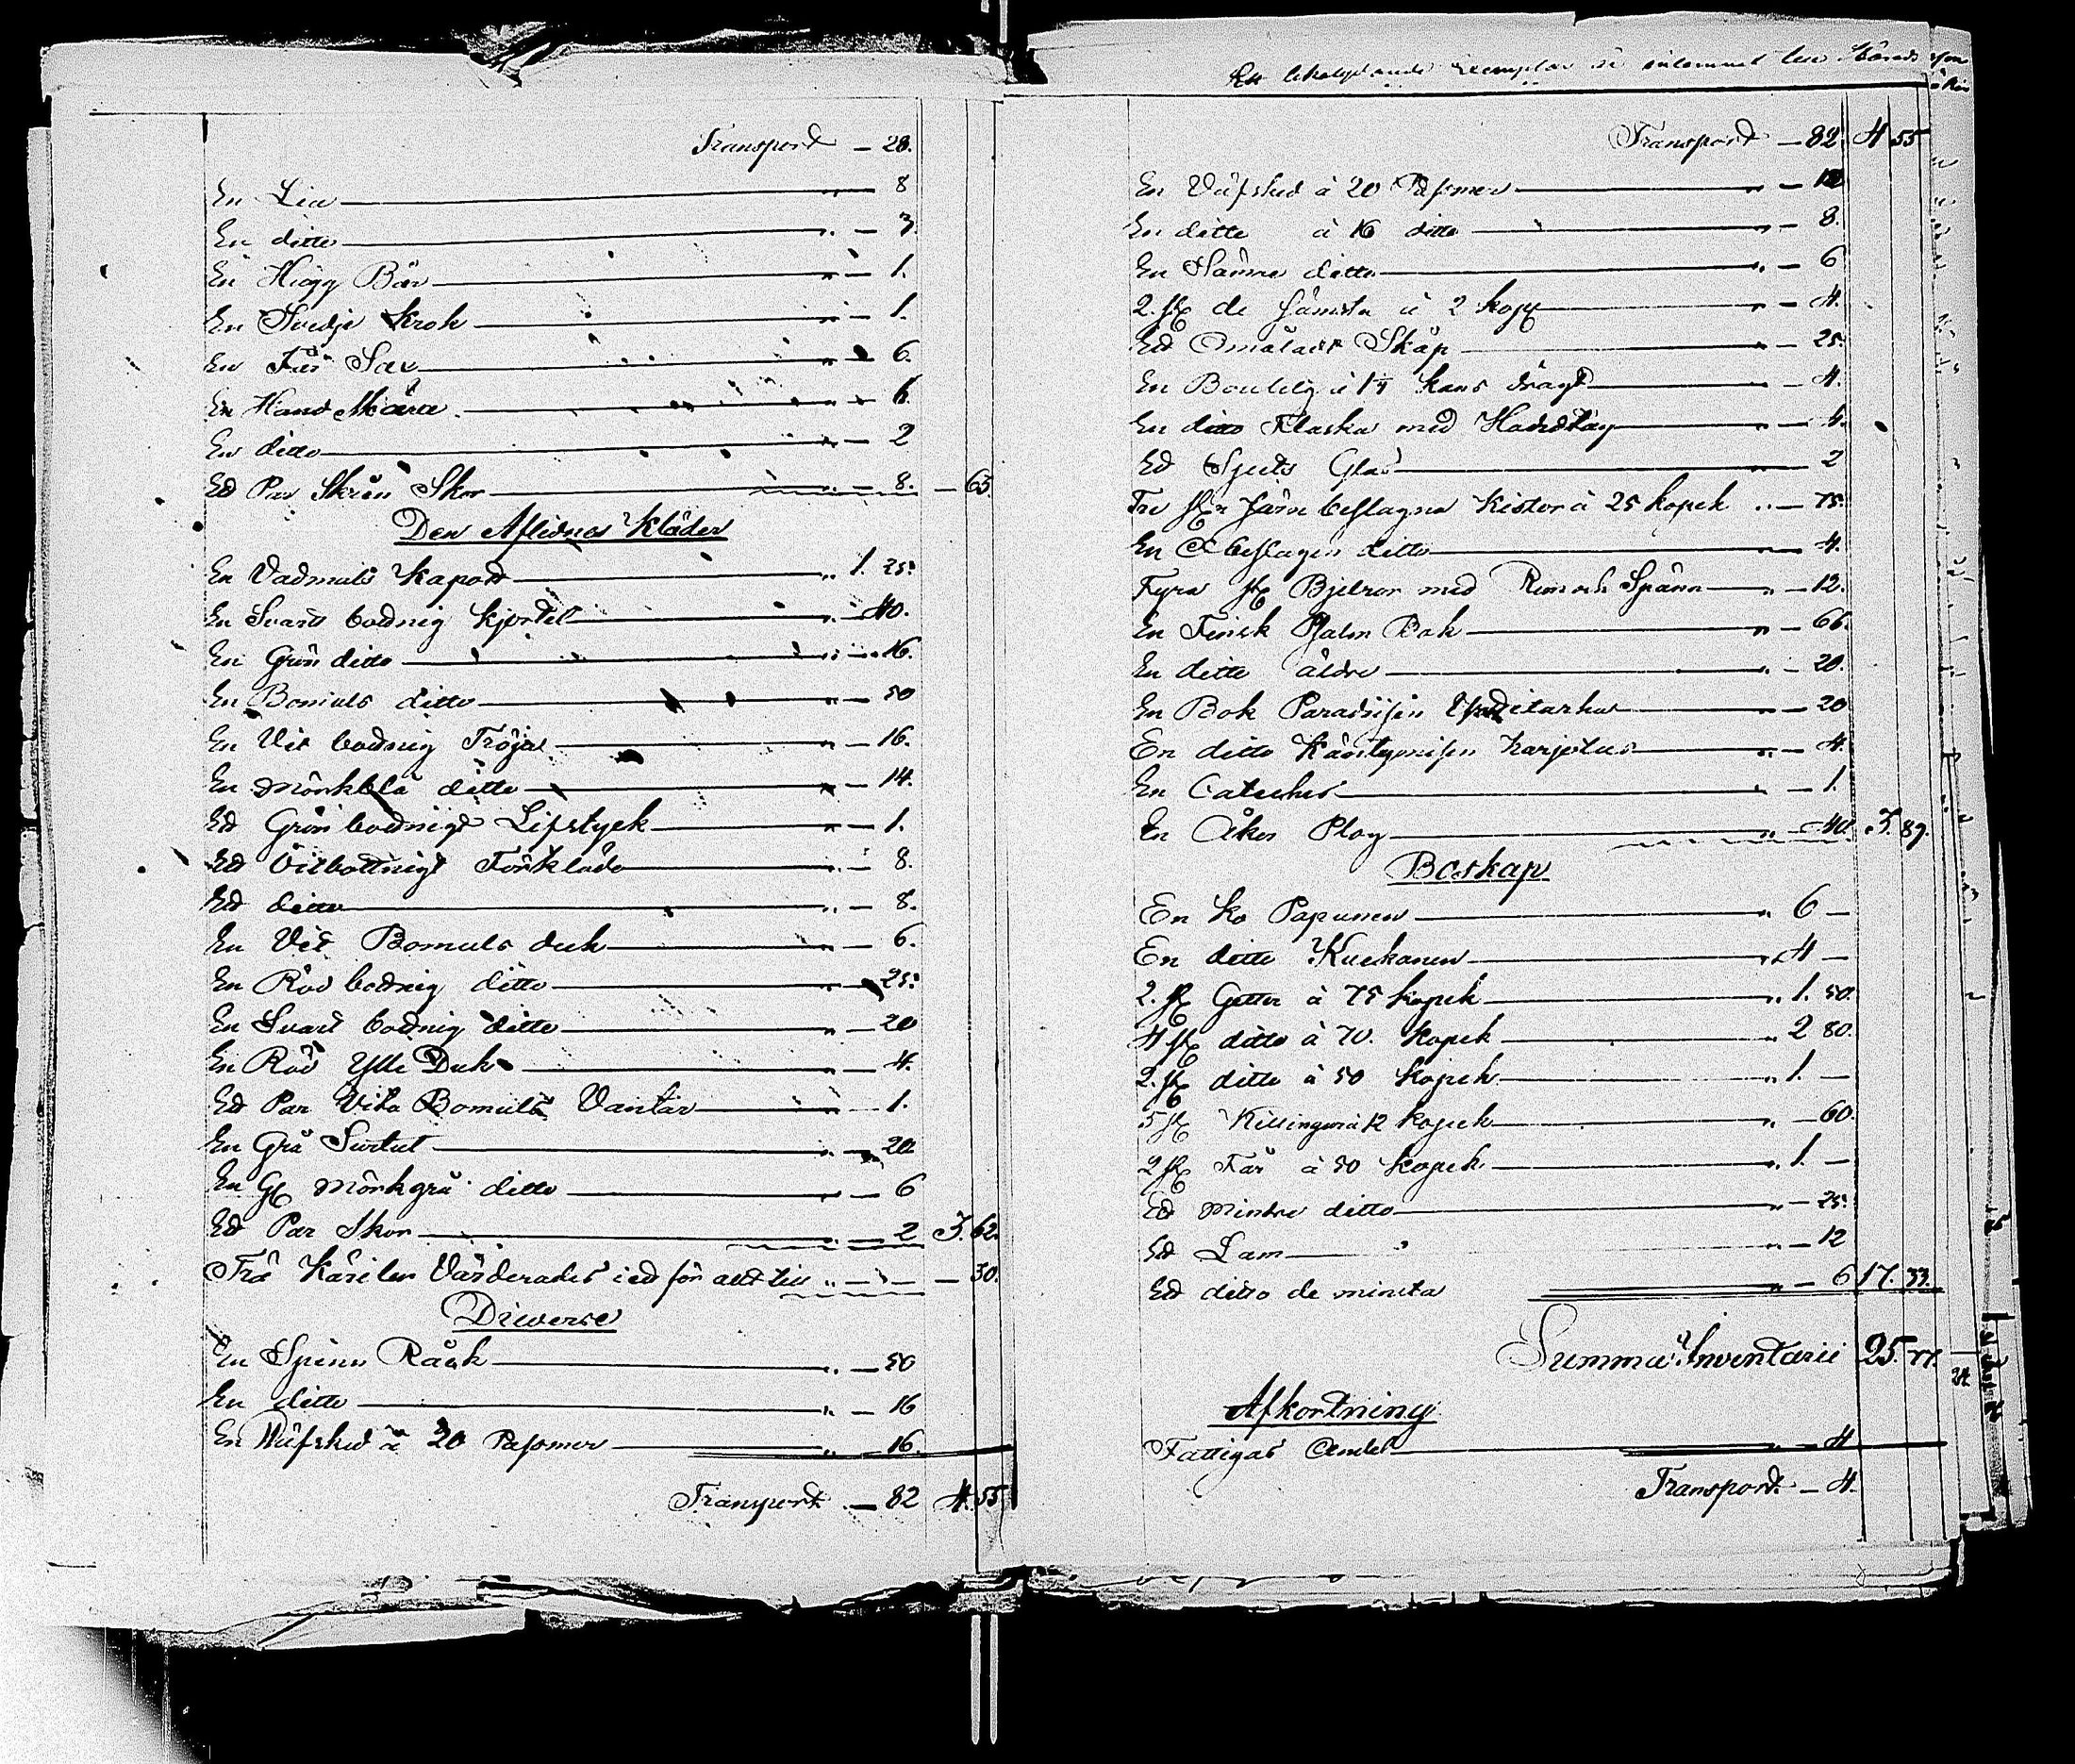 Transport — 28.
En Lia " — 8
En ditto " — 3
En Hiogg Bär " — 1.
En Svedje Krok " — 1.
En Två Sax " — 6.
En Hand Skära " — 6.
En ditto " — 2
Ett Par Skrin Skor " — 8. — 63
Den Aflidnas Kläder
En Vadmals Kaport " 1. 25.
En Svart bottnig Kjortel " — 40.
En Grön ditto " — 16.
En Bomuls ditto " — 50
En Vit bottnig Tröja " — 16.
En Mörkblå ditto " — 14.
Ett Grön bottnigt Lifstyck " — 1.
Ett Vitbottnigt Förkläde " — 8.
Ett ditto " — 8.
En Vit Bomuls duk " — 6.
En Röd bottnig ditto " — 25.
En Svart bottnig ditto " — 20
En Röd Ylle Duk " — 4.
Ett Par Vita Bomuls Vantar " — 1.
En Grå Surtut " — 20
En Gl Mörkgrå ditto " — 6
Ett Par Skor " — 2 3. 62.
Trä Käriler Värderades i ett för allt till " — — 30.
Diverse
En Spinn Råck " — 50
En ditto " — 16
En Väfsked à 20 Pasmer " — 16.
Transport " — 82 4. 55
Ett likalydande Exemplar är inlemnat
Transport — 82 4 55
En Väfsked à 20 Pasmer " — 10
En ditto à 16 ditto " — 8.
En Sämre ditto " — 6
2. st de sämsta à 2 kop " — 4.
Ett Omålat Skåp " — 25.
En Boutelg à 1 1/4 kans drägt " — 4.
En ditto Flaska med Handtag " — 4.
Ett Spets Glas — 2
Tre st Järn beslagna Kistor à 25 kopek " — 75.
En Obeslagen ditto " — 4.
Fyra st Bjelror med Rem och Spänn " — 12.
En Finsk Psalm Bok " — 66.
En ditto äldre " — 20.
En Bok Paradisin Yrtitarha " — 20
En ditto Kärsimisen harjotus " — 4.
En Cateches " — 1.
En Åker Plog " — 40. 3. 89.
Boskap
En Ko Papunen " 6 —
En ditto Kuckanen " 4 —
2. st Getter à 75 kopek " 1. 50.
4 st ditto à 70. kopek " 2 80.
2. st ditto à 50 kopek " 1. —
5 st Killingar à 12 kopek " — 60.
2 st Får à 50 kopek " 1. —
Ett Mindre ditto " — 25.
Ett Lam " — 12
Ett ditto de minsta " — 6 17. 33.
Summa Inventarii 25. 77.
Afkortning
Fattigas Andel " — 4
Transport — 4.